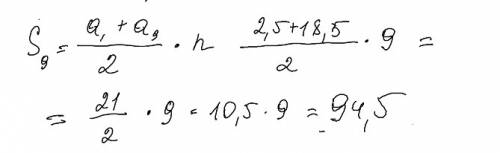 S₉ = (a₁ + a₉)/2 · n (2,5+18,5)/2 · 9 =
= 21/2 · 9 = 10,5 · 9 = 94,5